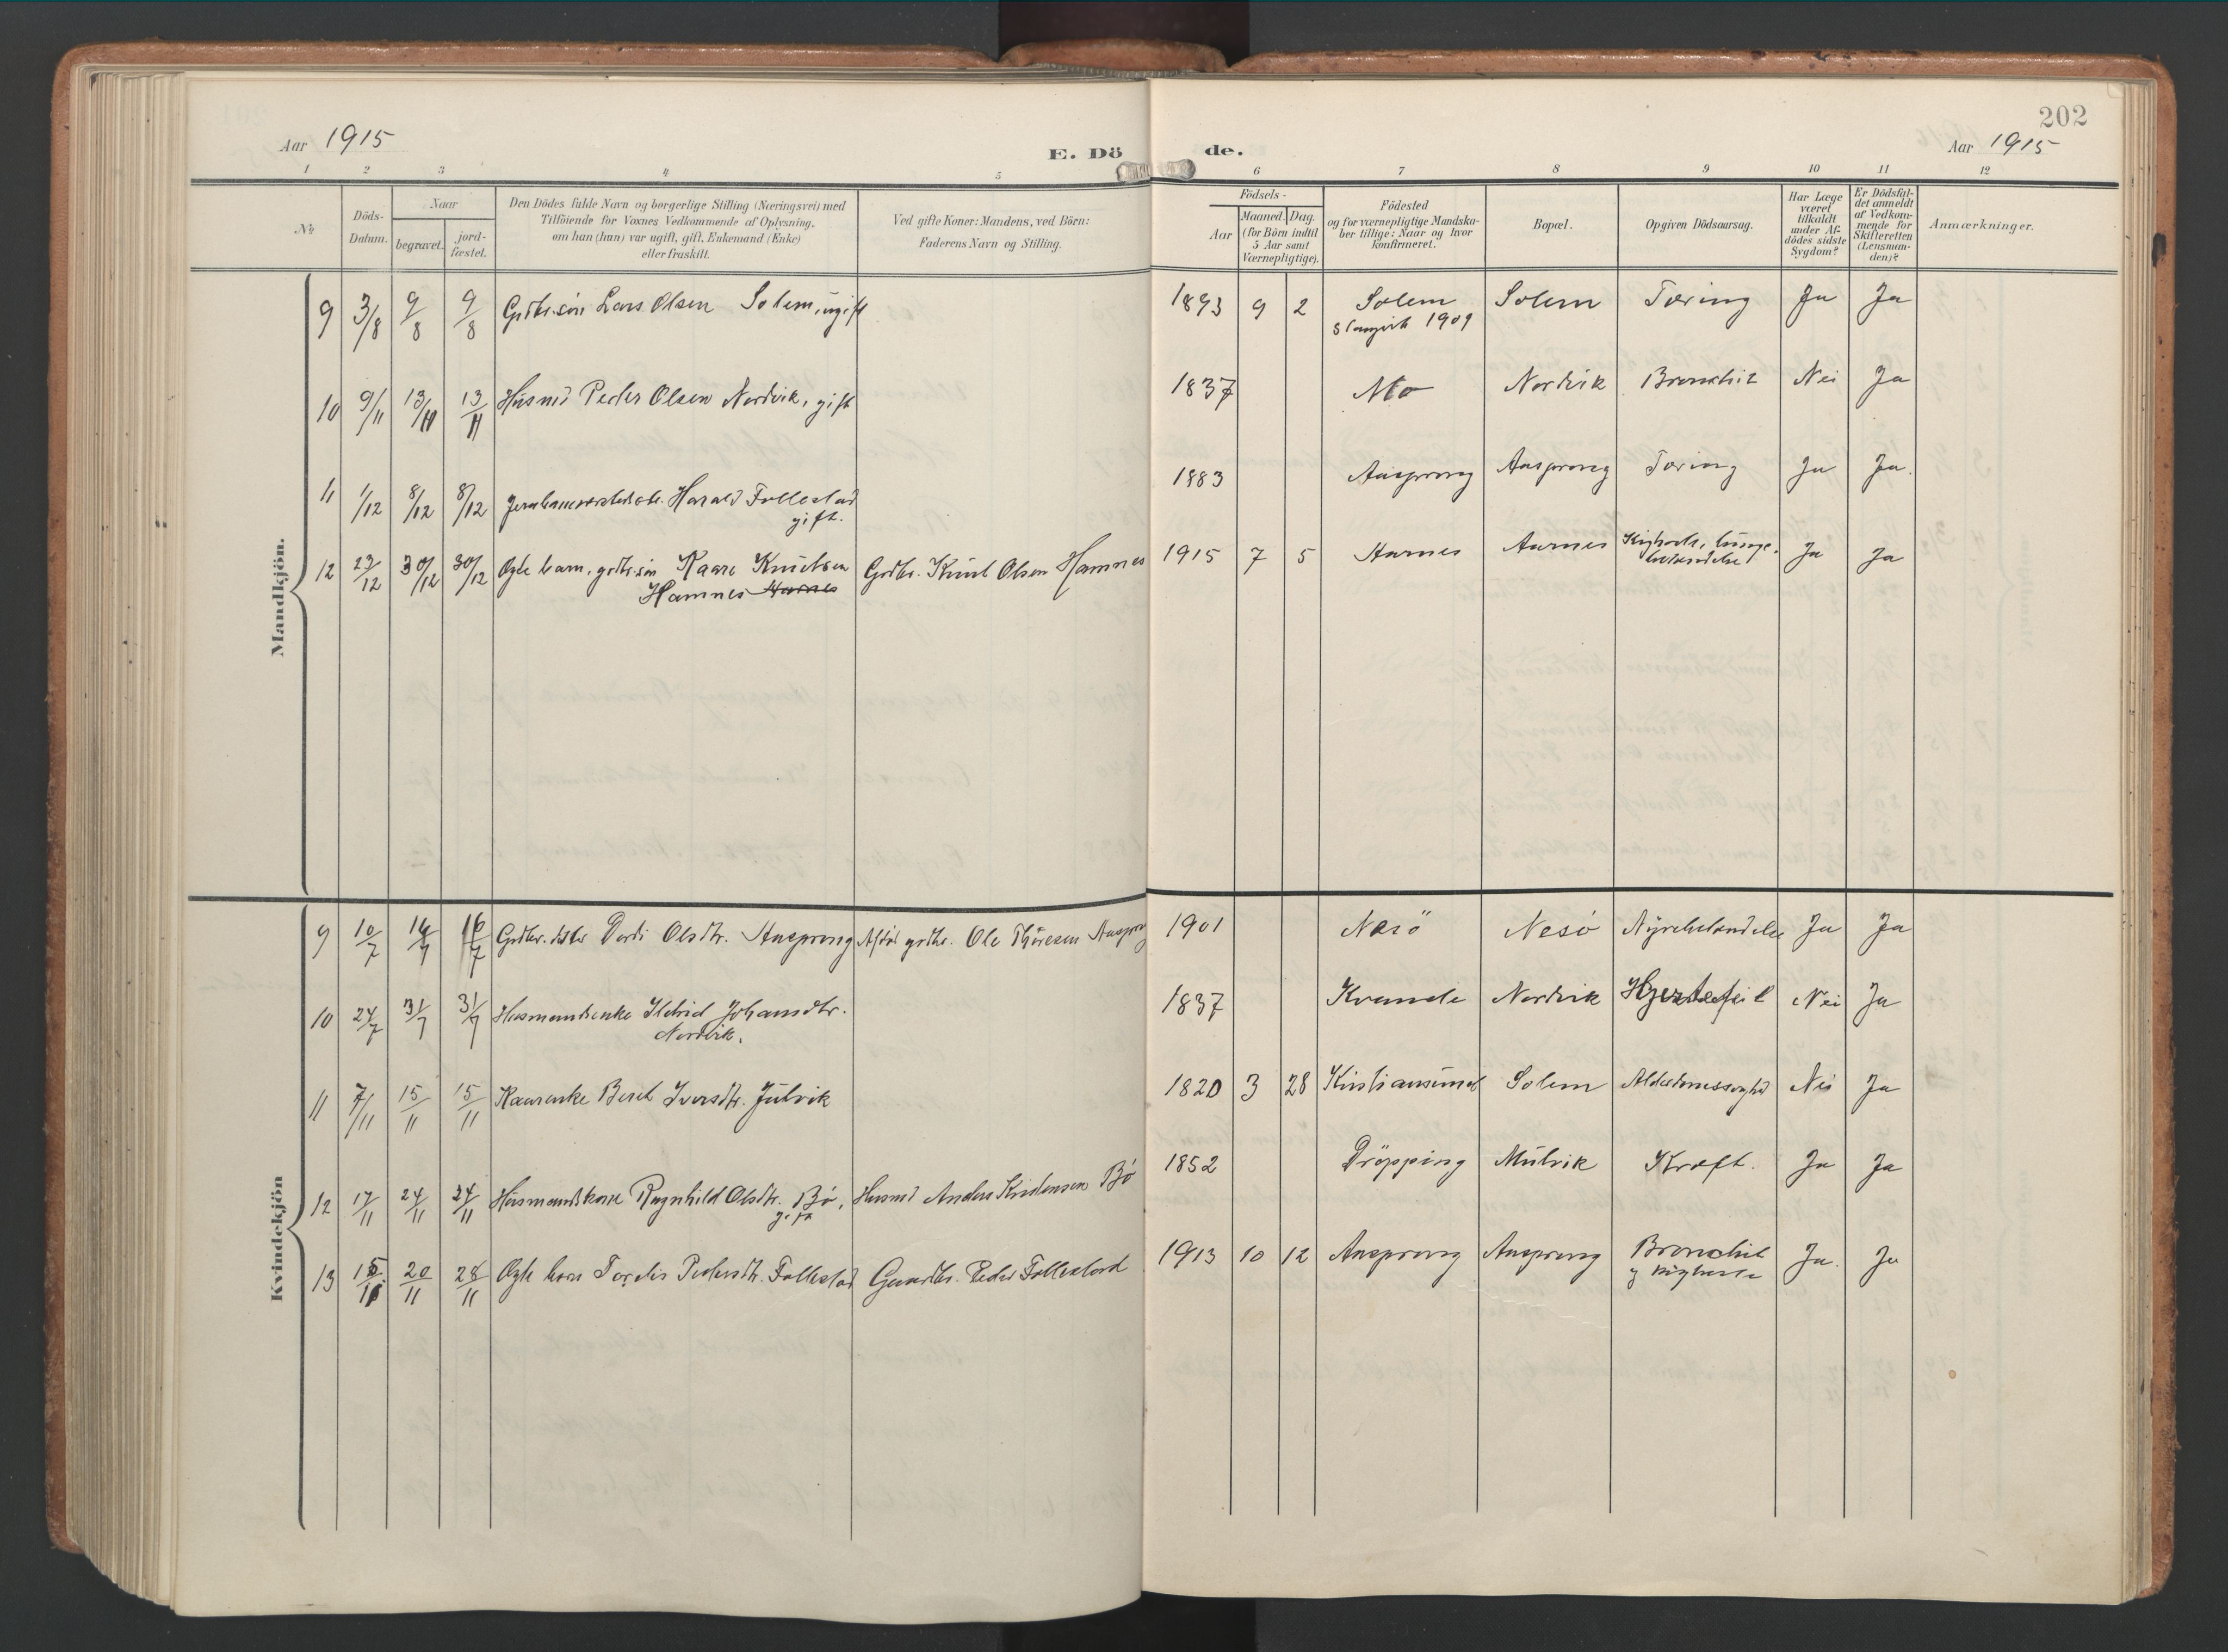 202
Aar 1915
E. Dö de.
Aar 1915
1 2 3 4 5 6 7 8 9 10 11 12
No
Döds-
Datum.
Naar
begravet.
jord-
fæstet.
Den Dödes fulde Navn og borgerlige Stilling (Næringsvei) med
Tilföiende for Voxnes Vedkommende af Oplysning,
om han (hun) var ugift, gift, Enkemand (Enke)
eller fraskilt.
Ved gifte Koner: Mandens, ved Börn:
Faderens Navn og Stilling.
Födsels-
Aar
Maaned. Dag.
(for Börn indtil
5 Aar samt
Værnepligtige).
Födested
og for værnepligtige Mandska-
ber tillige: Naar og hvor
konfirmeret.
Bopæl.
Opgiven Dödsaarsag.
Har Læge
været
tilkaldt
under Af-
dödes sidste
Sygdom?
Er Dödsfal-
det anmeldt
af Vedkom-
mende for
Skifteretten
(Lensman-
den)?
Anmærkninger.
Mandkjön.
9 3/8 9/8 9/8 Grdbr.sön Lars Olsen Solem, ugift 1893 9 2 Solem Solem Tæring Ja Ja
1909
10 9/11 13/11 13/11 Husmd Peder Olsen Nordvik, gift 1837 Mo Nordvik Bronchit Nei Ja
11 1/12 8/12 8/12 Harald Follestad 1883 Aasprong Aasprong Tæring Ja Ja.
gift.
12 23/12 30/12 30/12 Ægte barn, grdbr.sön Kaare Knutsen Grdbr. Knut Olsen Hamnes 1915 7 5 Hamnes Hamnes Kighoste, lunge- Ja Ja
Hamnes Hamnes betændelse
Kvindekjön
9 10/7 16/7 16/7 Grdbr. datter Dordi Olsdtr. Aasprong Afdöd grdbr. Ole Thöresen Aasprong 1901 Nesö Nesö Nyrebetændelse Ja Ja
10 24/7 31/7 31/7 Husmandsenke Ildrid Johansdtr. 1837 Kvande Nordvik Hjertefeil Nei Ja
Nordvik.
11 7/11 15/11 15/11 Kaarenke Beret Iversdtr. Julvik 1820 3 28 Kristiansund Solem Alderdomssvaghed Nei Ja
12 17/11 24/11 24/11 Husmandskone Ragnhild Olsdtr. Bö, Husmd Anders Kristensen Bö 1852 Dröpping Mulvik Kræft. Ja Ja
gift
13 15/11 20/11 28/11 Ægte barn Tordis Pedersdtr. Follestad Gaardbr. Peder Follestad 1913 10 12 Aasprong Aasprong Bronchit Ja. Ja
og kighoste